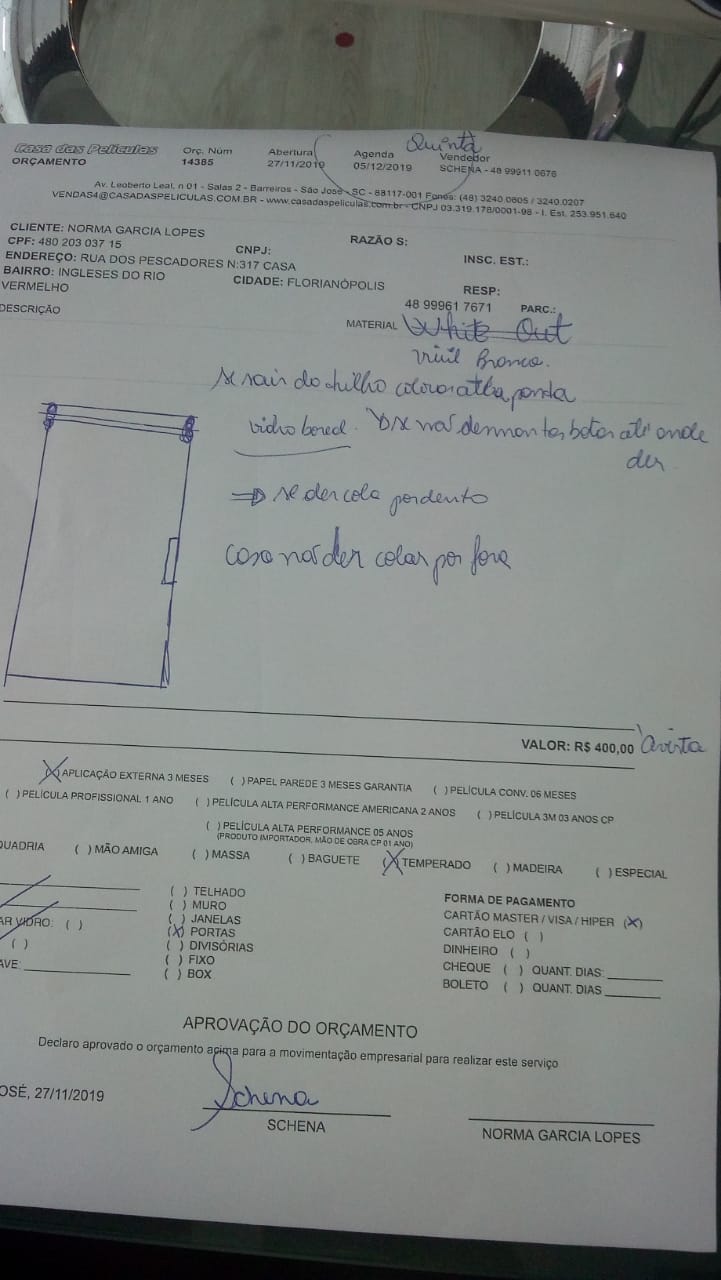 Quinta
Casa das Películas Orç. Núm Abertura Agenda Vendedor
ORÇAMENTO 14385 27/11/2019 05/12/2019 SCHENA - 48 99911 0676
Av. Leoberto Leal, n 01 - Salas 2 - Barreiros - São José - SC - 88117-001 Fones: (48) 3240.0605 / 3240.0207
VENDAS4@CASADASPELICULAS.COM.BR - www.casadaspeliculas.com.br - CNPJ 03.319.178/0001-98 - I. Est. 253.951.640
CLIENTE: NORMA GARCIA LOPES RAZÃO S:
CPF: 480 203 037 15 CNPJ: INSC. EST.:
ENDEREÇO: RUA DOS PESCADORES N:317 CASA
BAIRRO: INGLESES DO RIO VERMELHO CIDADE: FLORIANÓPOLIS RESP:
48 99961 7671 PARC.:
DESCRIÇÃO MATERIAL White Out
Vinil Branco.
se sair do trilho colocar atba porta
vidro bored. se não desmontar botar até onde
der
⇒ se der cola por dento
Caso não der colar por fora
VALOR: R$ 400,00 Avista
(X) APLICAÇÃO EXTERNA 3 MESES ( ) PAPEL PAREDE 3 MESES GARANTIA ( ) PELÍCULA CONV. 06 MESES
( ) PELÍCULA PROFISSIONAL 1 ANO ( ) PELÍCULA ALTA PERFORMANCE AMERICANA 2 ANOS ( ) PELÍCULA 3M 03 ANOS CP
( ) PELÍCULA ALTA PERFORMANCE 05 ANOS
(PRODUTO IMPORTADOR, MÃO DE OBRA CP 01 ANO)
QUADRIA ( ) MÃO AMIGA ( ) MASSA ( ) BAGUETE (X) TEMPERADO ( ) MADEIRA ( ) ESPECIAL
( ) TELHADO
( ) MURO
( ) JANELAS
(X) PORTAS
( ) DIVISÓRIAS
( ) FIXO
( ) BOX
AR VIDRO: ( )
( )
AVE:
FORMA DE PAGAMENTO
CARTÃO MASTER / VISA / HIPER (X)
CARTÃO ELO ( )
DINHEIRO ( )
CHEQUE ( ) QUANT. DIAS:
BOLETO ( ) QUANT. DIAS
APROVAÇÃO DO ORÇAMENTO
Declaro aprovado o orçamento acima para a movimentação empresarial para realizar este serviço
OSÉ, 27/11/2019
Schena
SCHENA
NORMA GARCIA LOPES